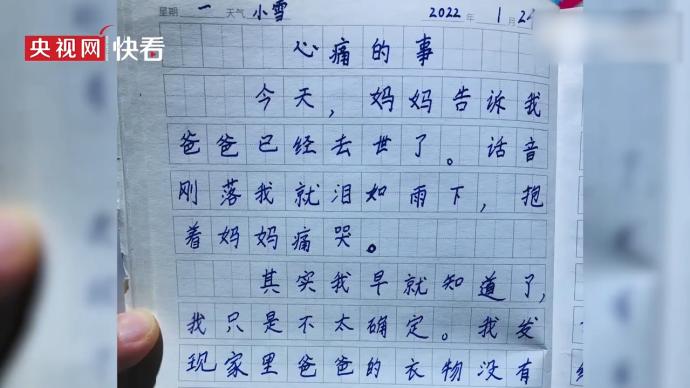 星期 一 天气 小雪 2022年 1月24
央视网 快看
心痛的事
今天，妈妈告诉我
爸爸已经去世了。话音
刚落我就泪如雨下，抱
着妈妈痛哭。
其实我早就知道了，
我只是不太确定。我发
现家里爸爸的衣物没有